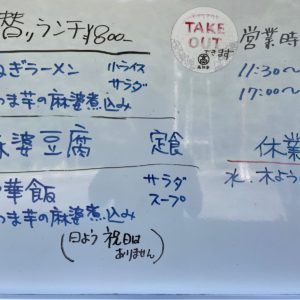 替りランチ¥800-
ねぎラーメン 小ライス
サラダ
つま芋の麻婆煮込み
麻婆豆腐 定食
華飯 サラダ
スープ
つま芋の麻婆煮込み
(日よう祝日は
ありません)
テイクアウト
TAKE
OUT
できます
営業時
11:30〜
17:00〜
休業
水・木よう